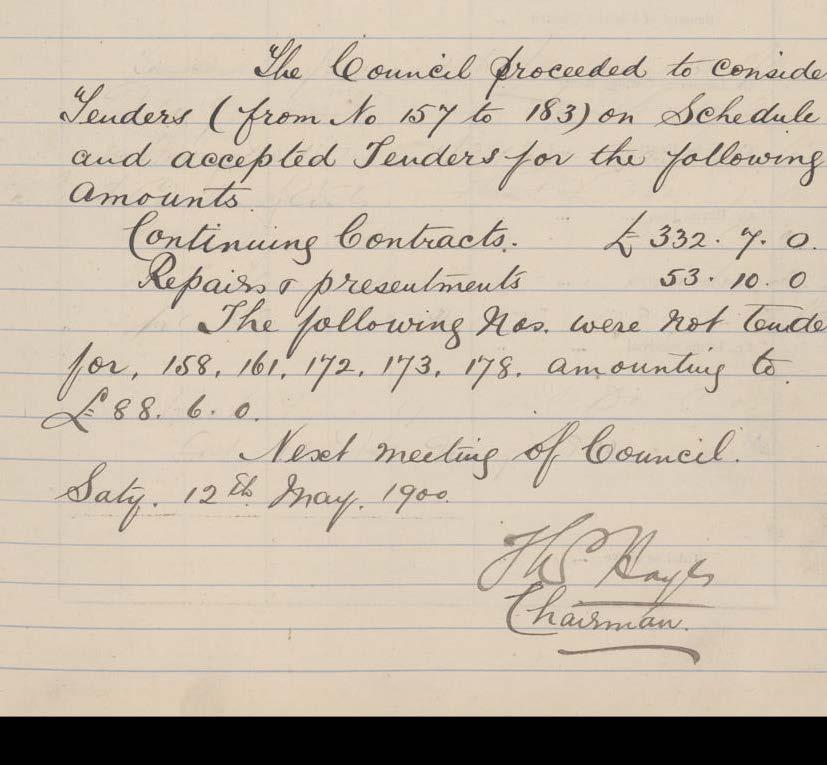 The Council proceeded to conside
Tenders (from No 157 to 183) on Schedule
and accepted Tenders for the following
amounts
Continuing Contracts. £332. 7. 0.
Repairs & presentments 53. 10. 0
The following Nos. were not tende
for, 158, 161, 172, 173, 178. amounting to
£88. 6. 0.
Next meeting of Council.
Saty. 12th May. 1900.
Hayes
Chairman.